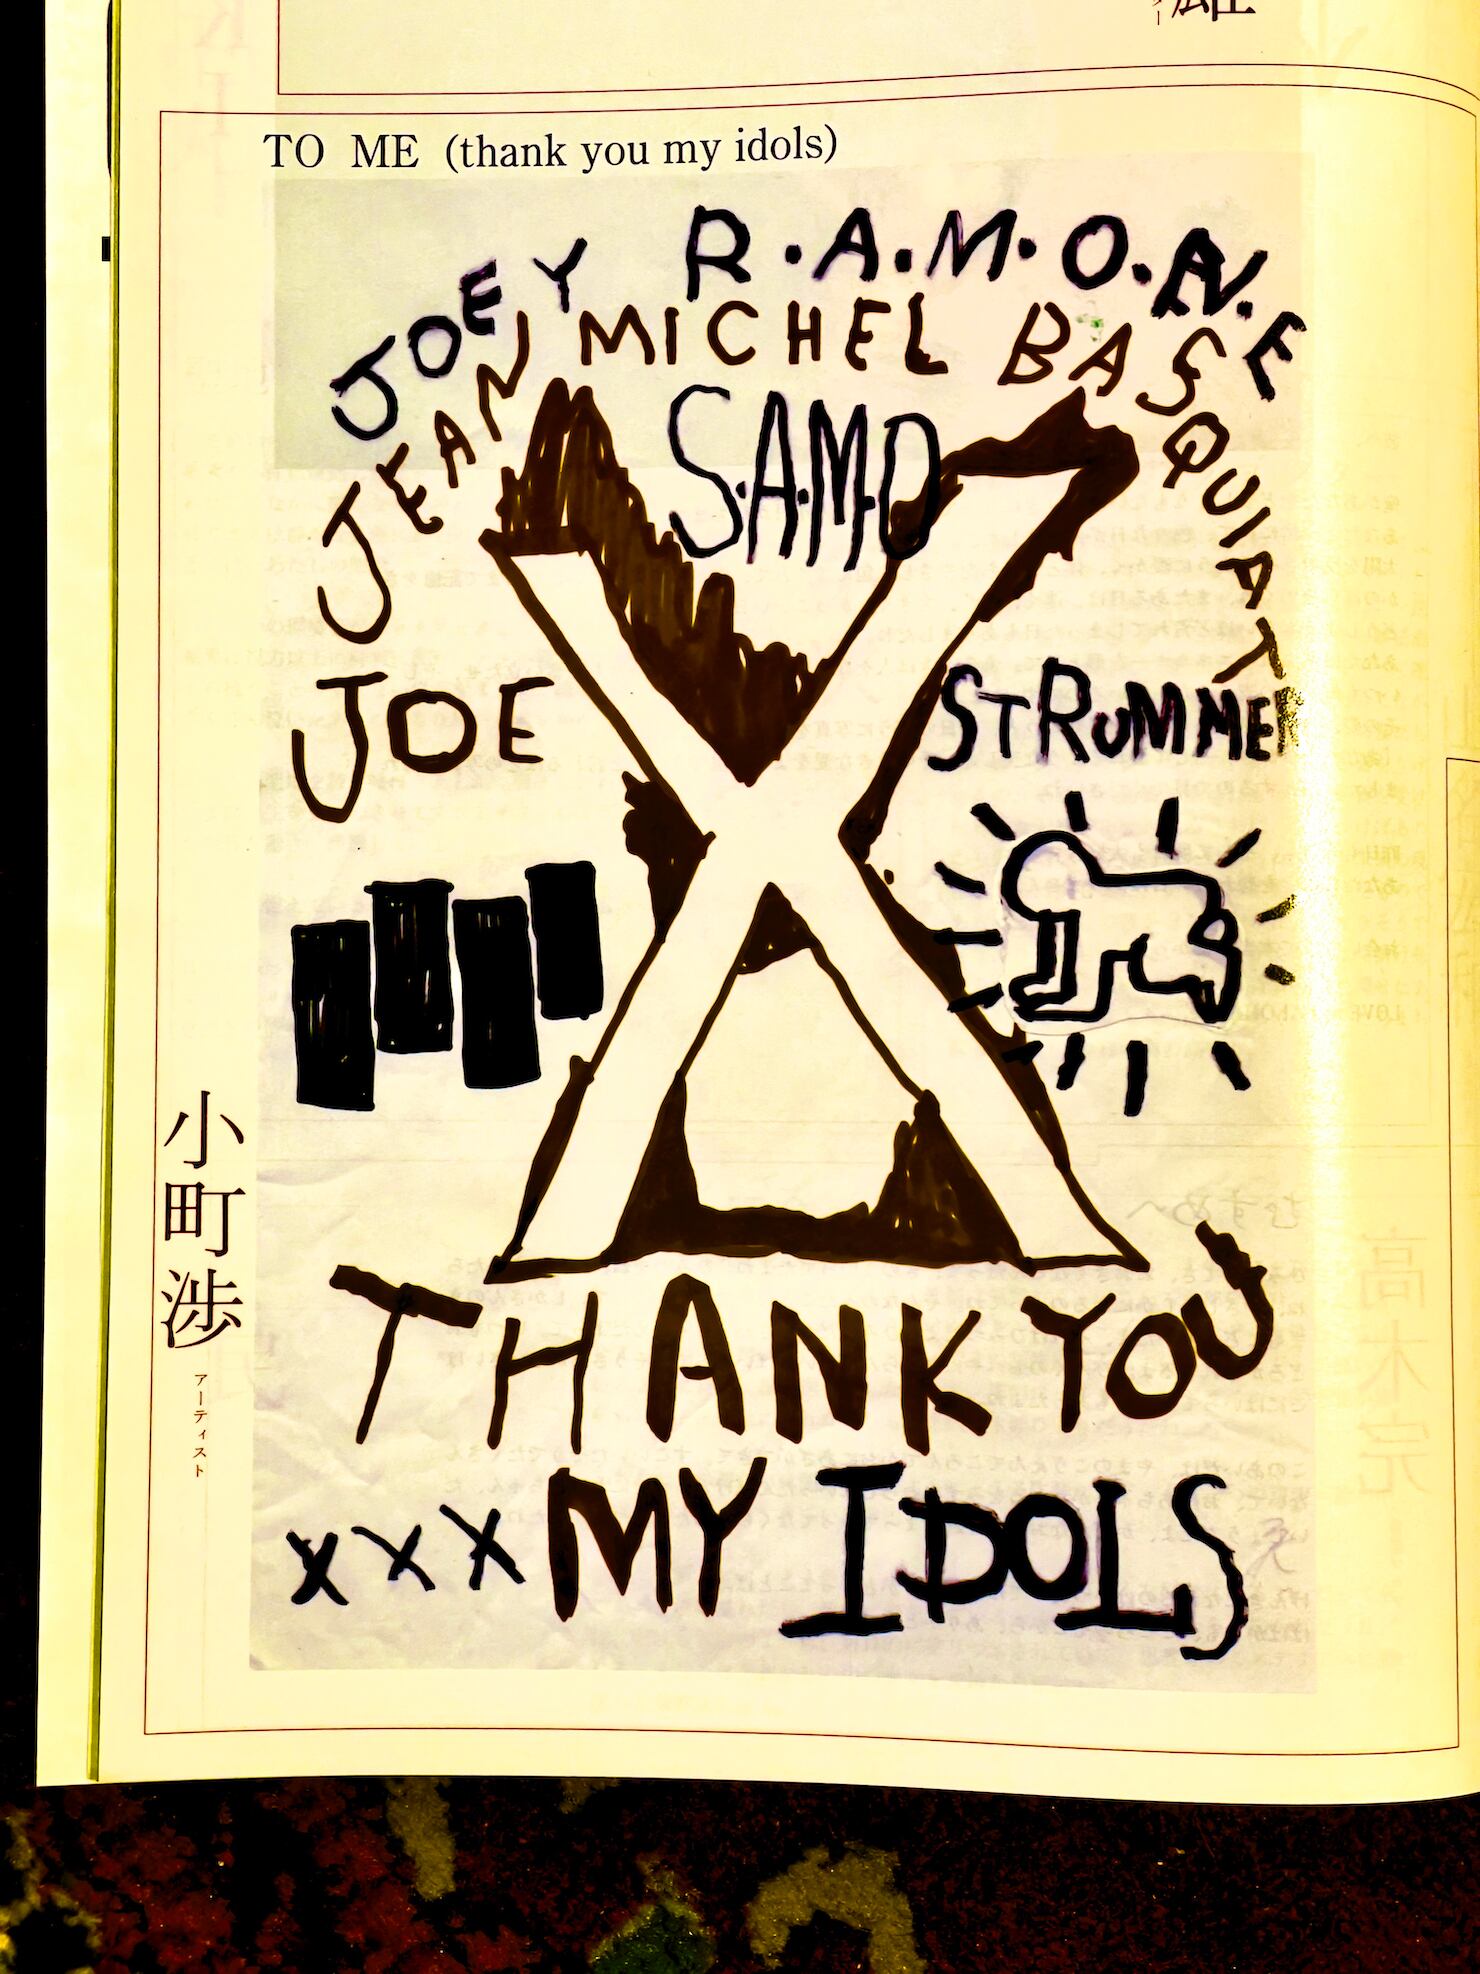 TO ME (thank you my idols)
JOEY R.A.M.O.N.E
JEAN MICHEL BASQUIAT
S.A.M.O
JOE STRUMMER
X
THANK YOU
xxx MY IDOLS
小町渉
アーティスト